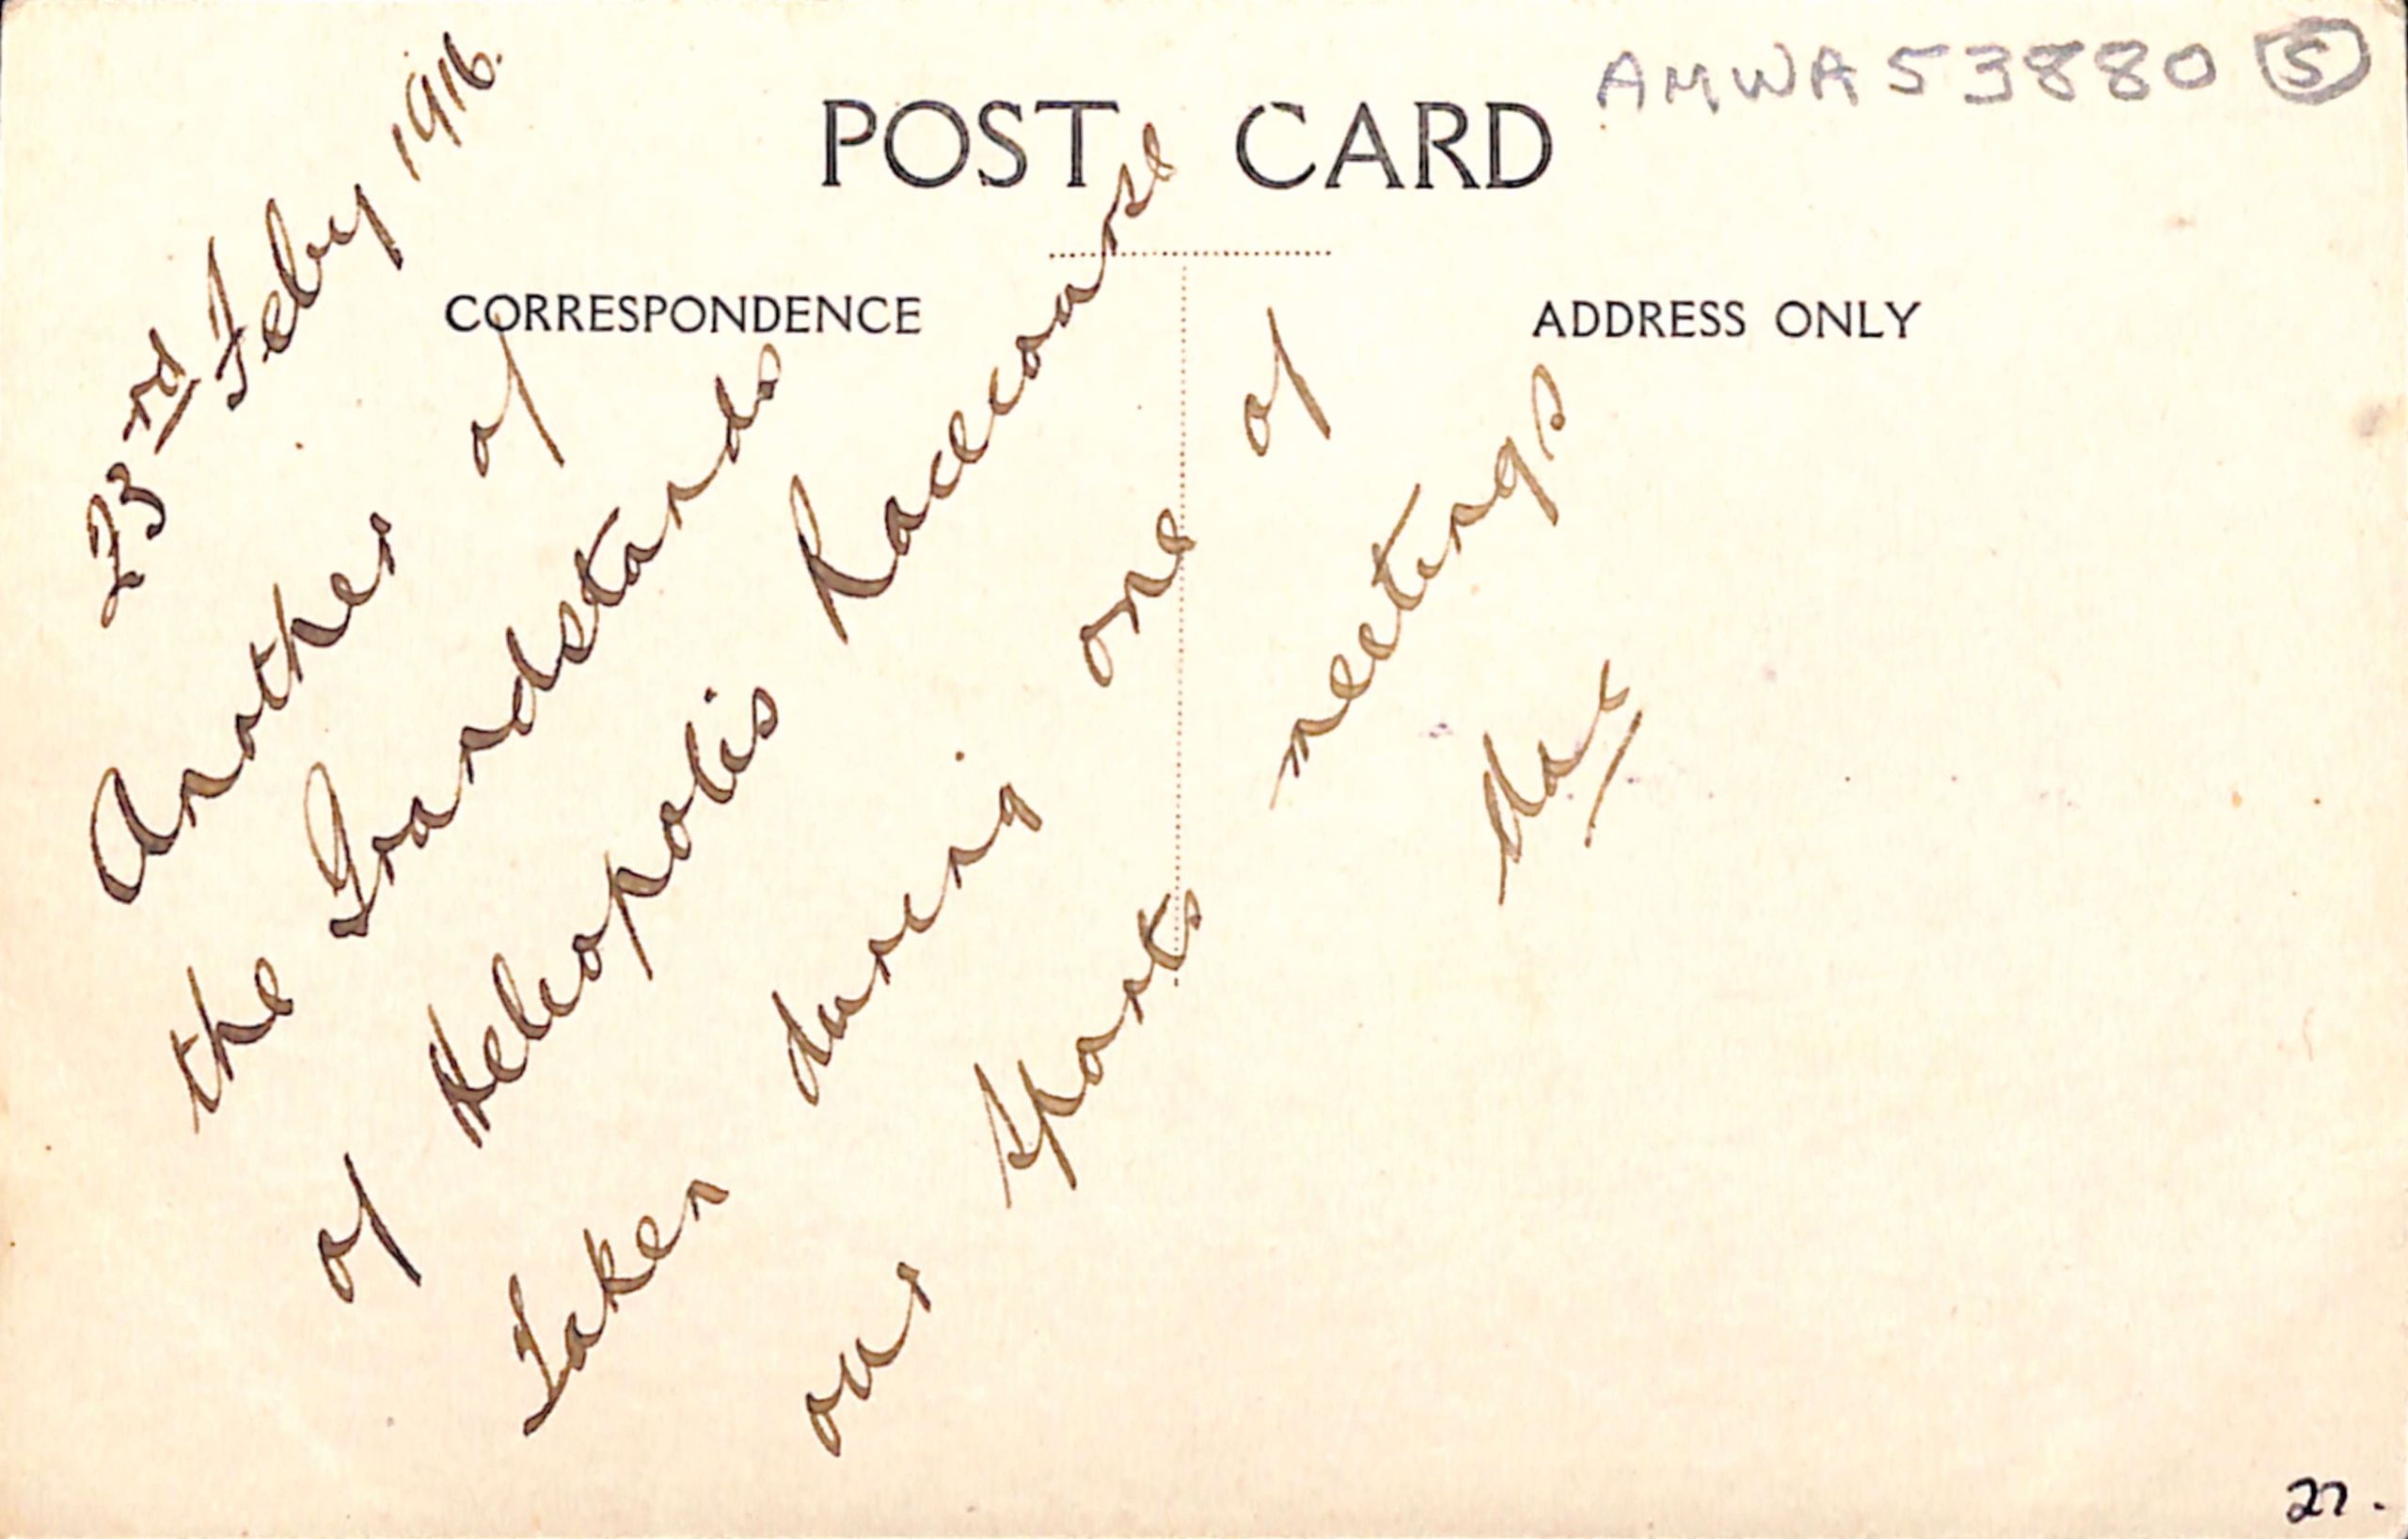 AMWA53880 5
POST CARD
CORRESPONDENCE
ADDRESS ONLY
23rd Feby 1916.
Another of
the Grandstands
of Heliopolis Racecourse
Taken during one of
our sports meetings
27.